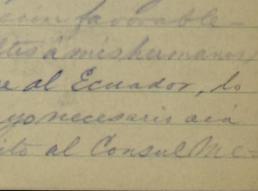 ción favorable-
ltes á mis hermanos,
e al Ecuador, lo
yo necesario
ito al Consul Mc-